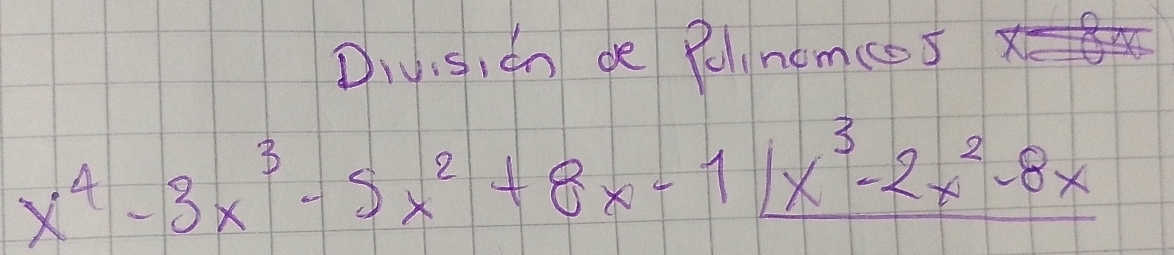 División de Polinomios
x⁴ - 3x³ - 5x² + 8x - 1 | x³ - 2x² - 8x